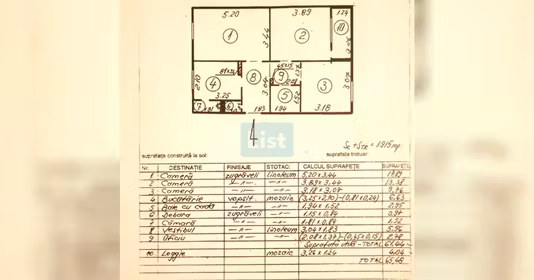 5.20
3.89
1.24
1
3.44
2
10
2.10
4
8
9
3
3.07
3.25
7
6
5
1.83
1.94
3.18
4
list
Sc + STR = 1915 mp
suprafata construită la sol:
suprafata trotuar
Nr. DESTINATIE FINISAJE STOTAC: CALCUL SUPRAFETE SUPRAFETE
1 Cameră zugrăveli linoleum 5.20 x 3.44 17.89
2 Cameră -"- -"- 3.89 x 3.44 13.38
3 Cameră -"- -"- 3.18 x 3.07 9.76
4 Bucătărie vopsit. mozaic (3.25 x 2.10)-(0.81 x 0.24) 6.63
5 Baie cu cadă -"- -"- 1.94 x 1.52 2.95
6 Debara zugrăveli -"- 1.15 x 0.84 0.97
7 Cămară -"- -"- 1.81 x 0.84 1.52
8 Vestibul -"- linoleum 3.04 x 1.83 5.56
9 Oficiu -"- -"-
Suprafata utilă - TOTAL 61.44
10 Loggie mozaic 3.26 x 1.24 4.04
TOTAL 65.48